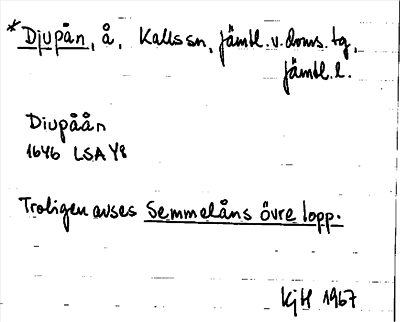 *Djupån, å, Kallssn, Jämtl. v. doms. tg,
Jämtl. l.
Diupåån
1646 LSA Y8
Troligen avses Semmelåns övre lopp.
KjH 1967